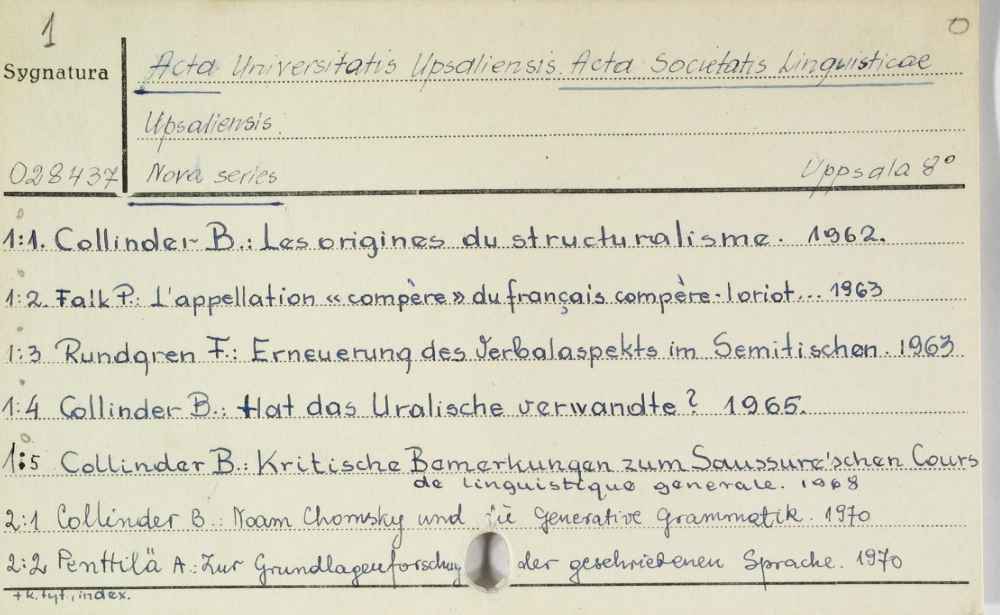 1
0
Sygnatura
Acta Universitatis Upsaliensis. Acta Societatis Linguisticae
Upsaliensis.
028437
Nova series
Uppsala 8°
1:1. Collinder B.: Les origines du structuralisme. 1962.
1:2. Falk P.: L'appellation « compère » du français compère-loriot... 1963
1:3 Rundgren F.: Erneuerung des Verbalaspekts im Semitischen. 1963
1:4 Collinder B.: Hat das Uralische verwandte? 1965.
1:5 Collinder B.: Kritische Bemerkungen zum Saussure'schen Cours
de linguistique generale. 1968
2:1 Collinder B.: Noam Chomsky und die Generative Grammatik. 1970
2:2 Penttilä A.: Zur Grundlagenforschung der geschriebenen Sprache. 1970
+k.tyt., index.